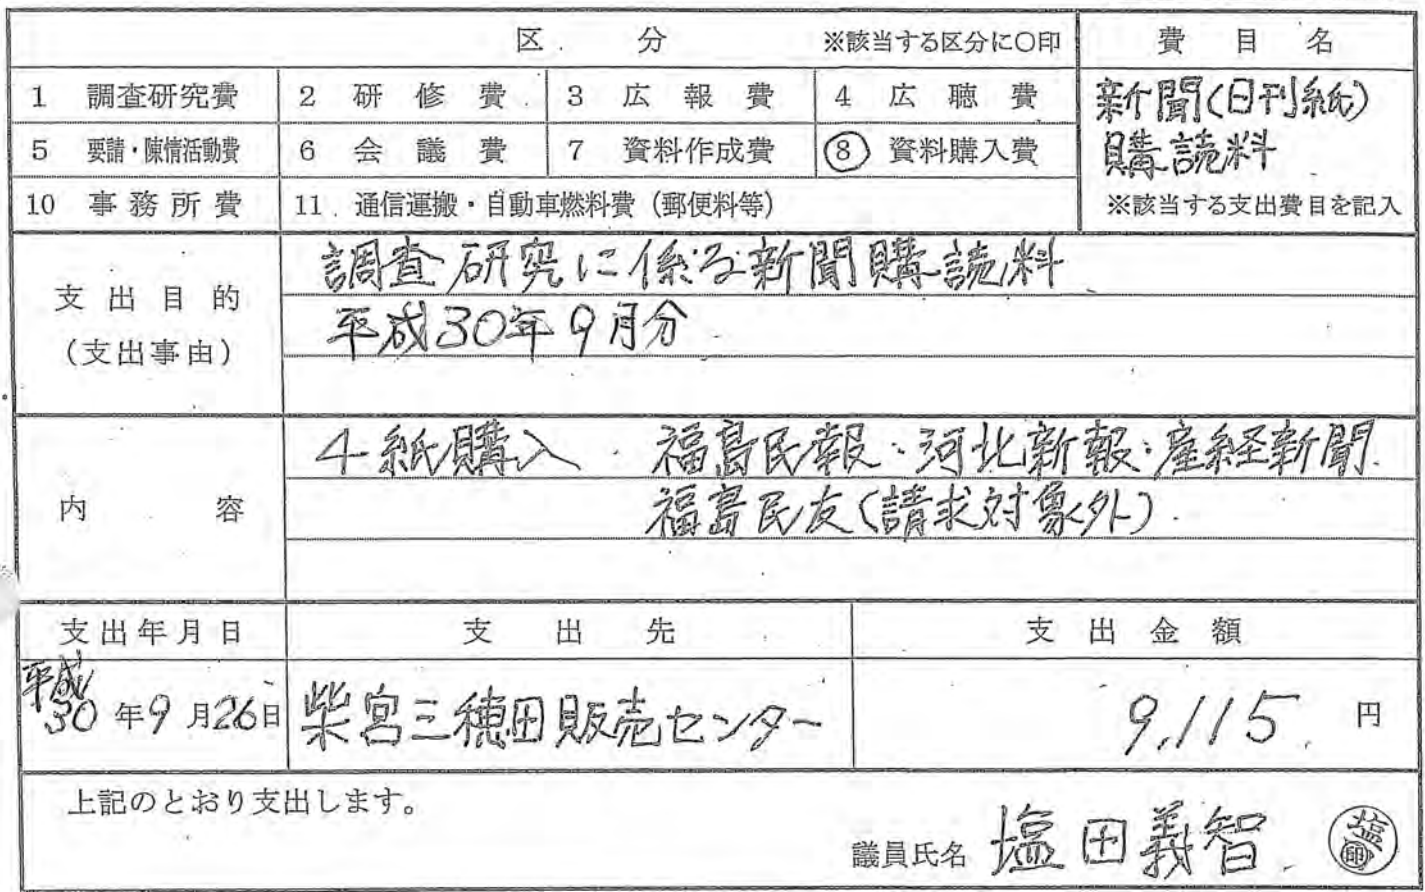 区 分 ※該当する区分に○印 費 目 名
1 調査研究費 2 研 修 費 3 広 報 費 4 広 聴 費 新聞(日刊紙)
5 要請・陳情活動費 6 会 議 費 7 資料作成費 8 資料購入費 購読料
10 事 務 所 費 11 通信運搬・自動車燃料費(郵便料等) ※該当する支出費目を記入
支 出 目 的
(支出事由)
調査研究に係る新聞購読料
平成30年9月分
内 容
4紙購入 福島民報・河北新報・産経新聞
福島民友(請求対象外)
支出年月日 支 出 先 支 出 金 額
平成30年9月26日 柴宮三穂田販売センター 9,115 円
上記のとおり支出します。
議員氏名 塩田義智 塩印